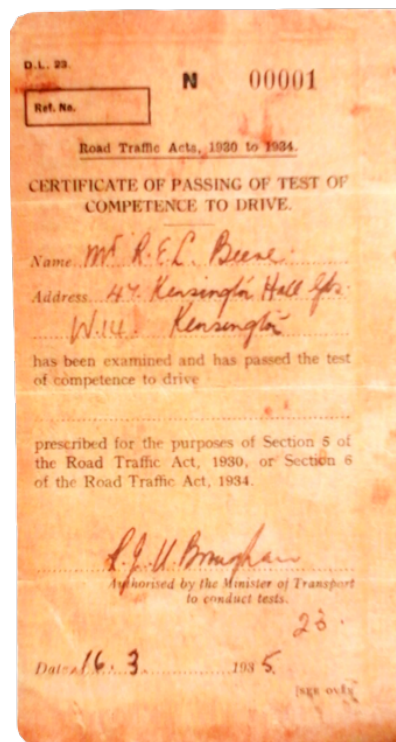 D.L. 23.
N 00001
Ref. No.
Road Traffic Acts, 1930 to 1934.
CERTIFICATE OF PASSING OF TEST OF
COMPETENCE TO DRIVE.
Name Mr R.E.L. Beere.
Address 47. Kensington Hall Gds.
W.14. Kensington
has been examined and has passed the test
of competence to drive
prescribed for the purposes of Section 5 of
the Road Traffic Act, 1930, or Section 6
of the Road Traffic Act, 1934.
Authorised by the Minister of Transport
to conduct tests.
23.
Date 16.3 1935.
[SEE OVER